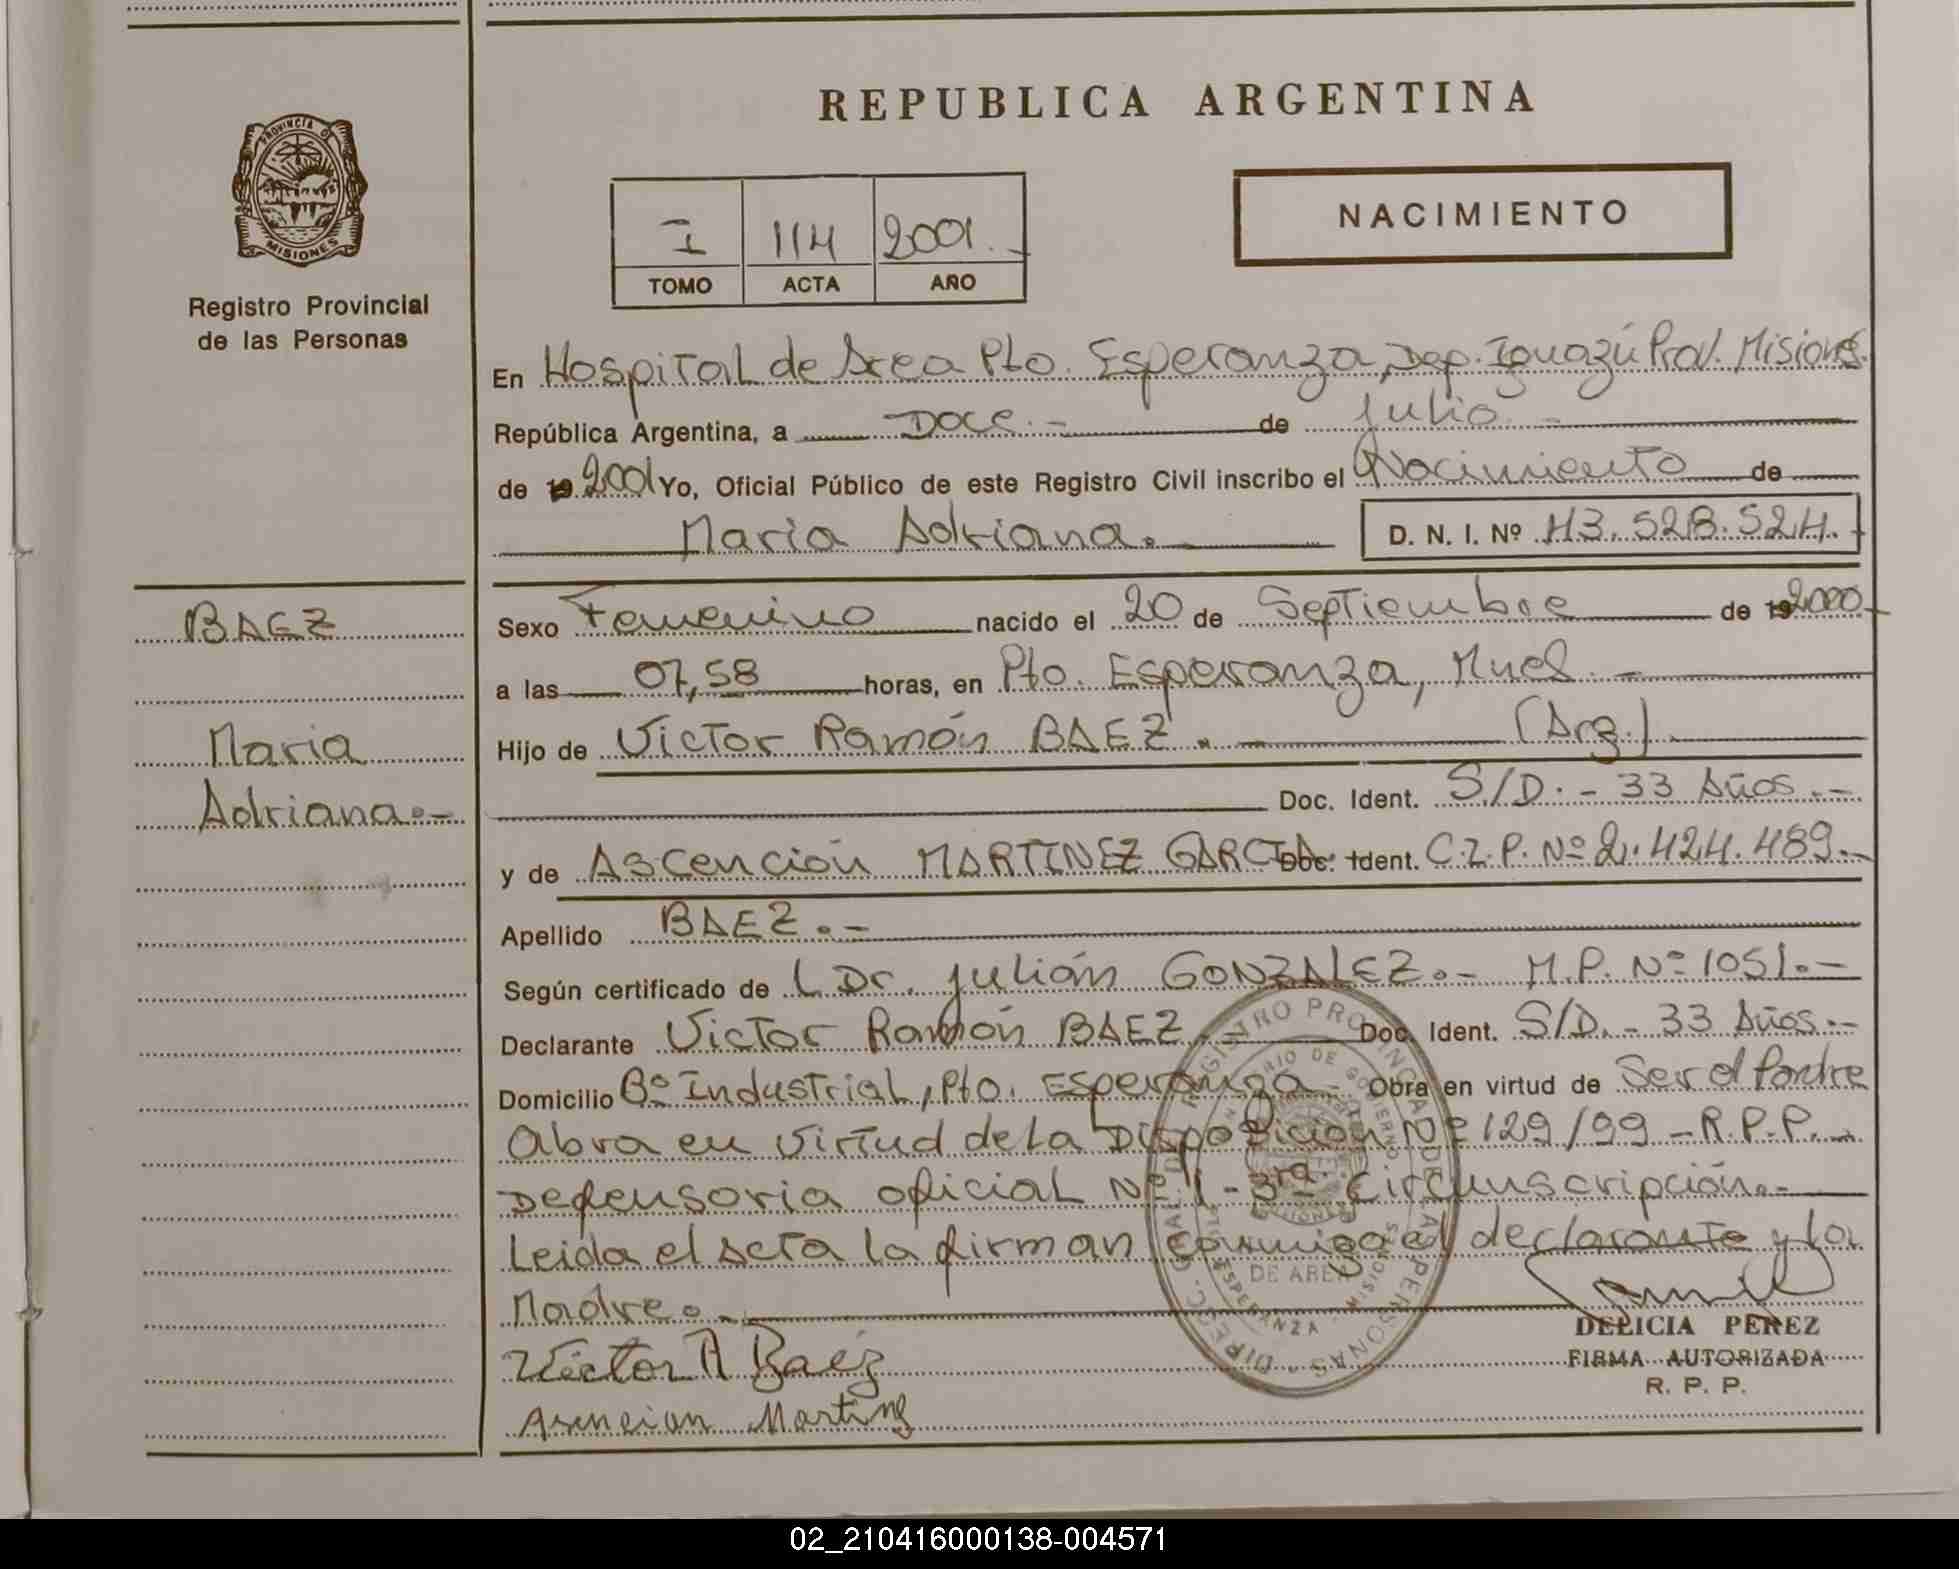 REPUBLICA ARGENTINA
PROVINCIA DE
MISIONES
Registro Provincial
de las Personas
I 114 2001.-
TOMO ACTA AÑO
NACIMIENTO
En Hospital de Area Pto. Esperanza, Dep. Iguazú Prov. Misiones.
República Argentina, a Doce.- de julio.-
de 19 2001 Yo, Oficial Público de este Registro Civil inscribo el Nacimiento de
Maria Adriana.- D. N. I. Nº 43.528.524.-
BAEZ
Maria
Adriana.-
Sexo Femenino nacido el 20 de Septiembre de 19 2000.-
a las 07,58 horas, en Pto. Esperanza, Mnes.-
Hijo de Victor Ramón BAEZ.- (Arg.)
Doc. Ident. S/D.- 33 Años.-
y de Ascención MARTINEZ GARCIA Doc. Ident. C.I.P. Nº 2.424.489.-
Apellido BAEZ.-
Según certificado de L Dr. Julián GONZALEZ.- M.P. Nº 1051.-
Declarante Victor Ramón BAEZ Doc. Ident. S/D.- 33 Años.-
Domicilio Bº Industrial, Pto. Esperanza.- Obra en virtud de Ser el Padre
Obra en virtud de la Disposición Nº 129/99 - R.P.P.-
Defensoria oficial Nº 1 - 3ra Circunscripción.-
Leida el Acta la firman conmigo el declarante y la
Madre.-
Victor R Baéz
Asencion Martinez
DELICIA PEREZ
FIRMA AUTORIZADA
R. P. P.
DIREC. GRAL. DEL REGISTRO PROVINCIAL DE LAS PERSONAS
MINISTERIO DE GOBIERNO
DE AREA
ESPERANZA - MISIONES
02_210416000138-004571